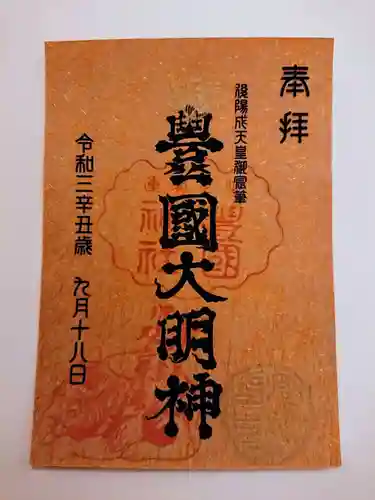 奉拝
後陽成天皇御宸筆
豊國大明神
令和三辛丑歳 九月十八日